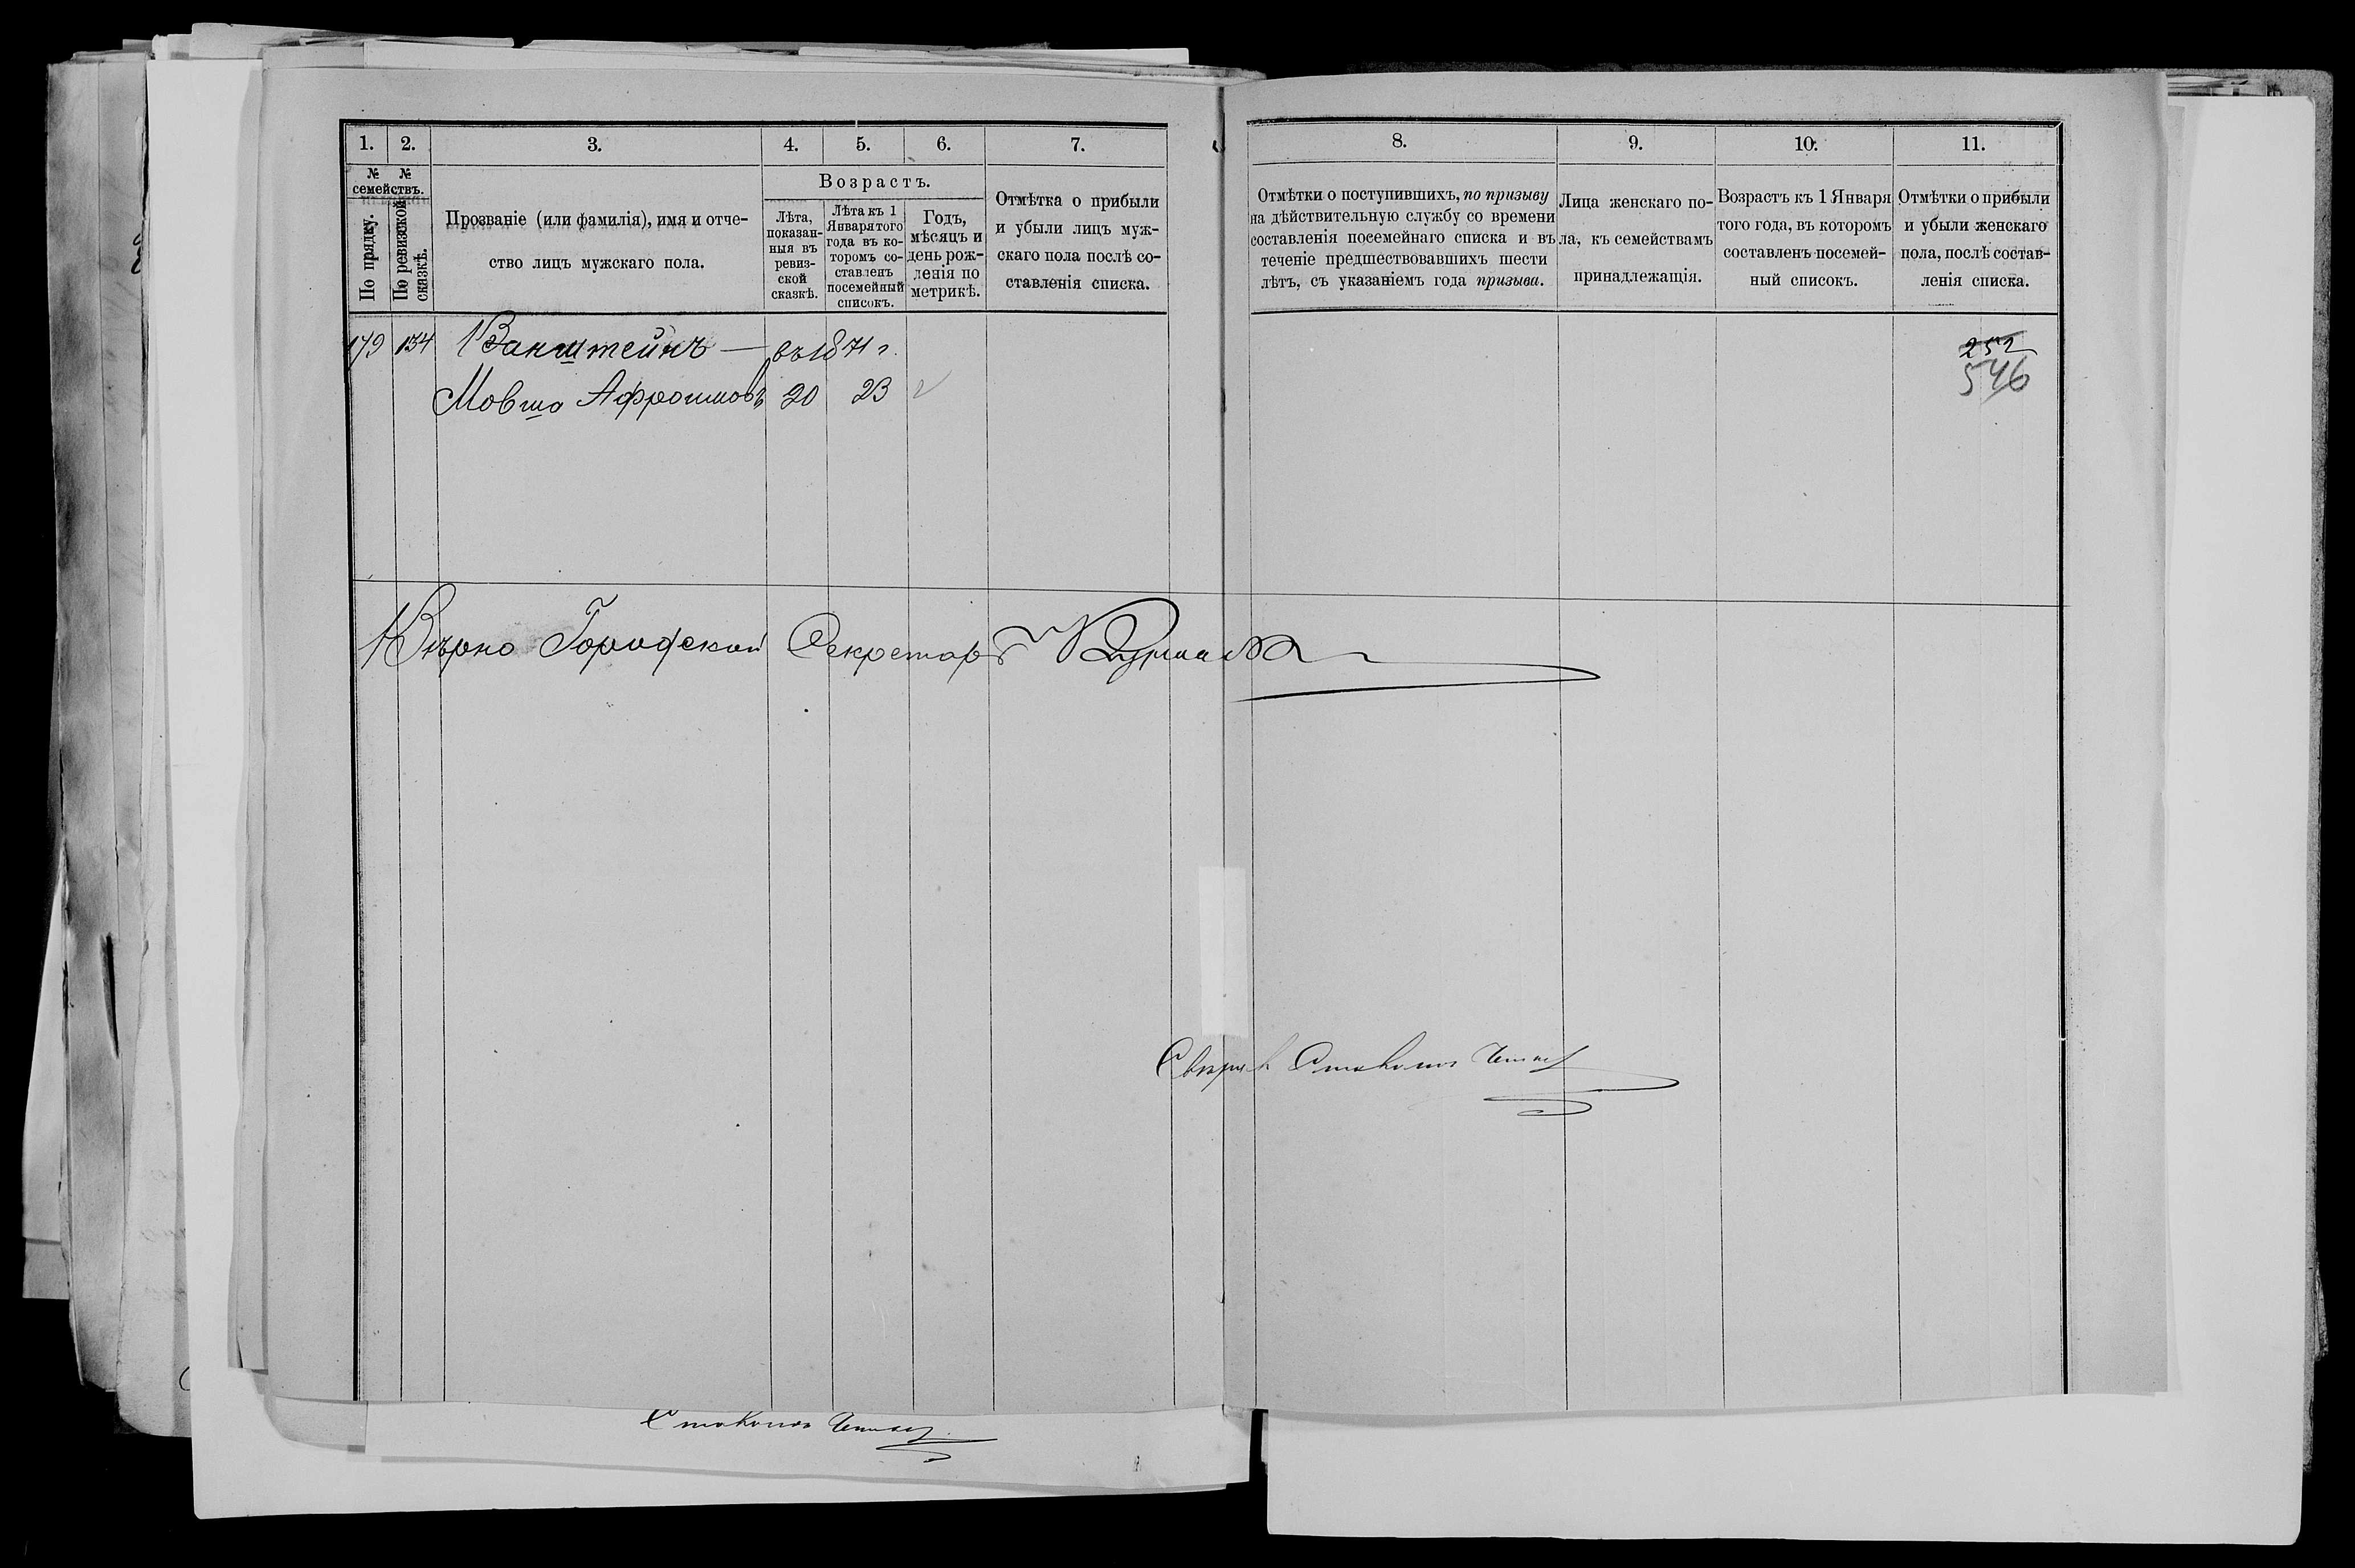 1. 2. 3. 4. 5. 6. 7. 8. 9. 10. 11.
№ № семействъ.
По прядку.
По ревизской сказкѣ.
Прозваніе (или фамилія), имя и отче-
ство лицъ мужскаго пола.
Возрастъ.
Лѣта,
показан-
ныя въ
ревиз-
ской
сказкѣ.
Лѣта къ 1
Января того
года въ ко-
торомъ со-
ставленъ
посемейный
списокъ.
Годъ,
мѣсяцъ и
день рож-
ленія по
метрикѣ.
Отмѣтка о прибыли
и убыли лицъ муж-
скаго пола послѣ со-
ставленія списка.
Отмѣтки о поступившихъ, по призыву
на дѣйствительную службу со времени
составленія посемейнаго списка и въ
теченіе предшествовавшихъ шести
лѣтъ, съ указаніемъ года призыва.
Лица женскаго по-
ла, къ семействамъ
принадлежащія.
Возрастъ къ 1 Января
того года, въ которомъ
составленъ посемей-
ный списокъ.
Отмѣтки о прибыли
и убыли женскаго
пола, послѣ состав-
ленія списка.
179 134 Ванштейнъ — въ 1871 г.
252
Мовша Афроимовъ 20 23
546
Вѣрно Городской Секретарь
Свѣрялъ Столоначал
Столонач